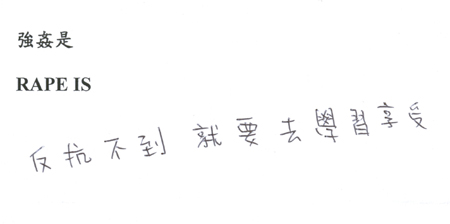 強姦是
RAPE IS
反抗不到 就要去學習享受